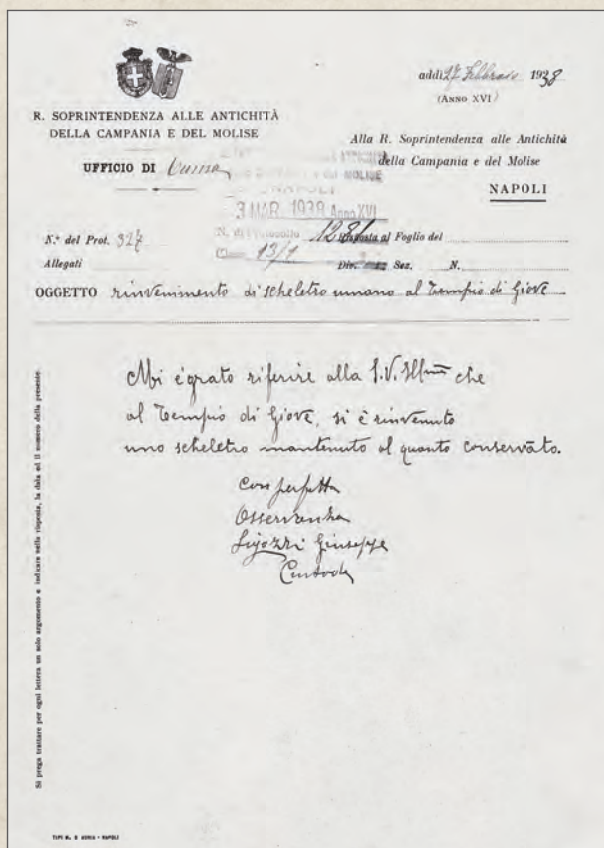 addì 27 Febbraio 1938
(ANNO XVI)
R. SOPRINTENDENZA ALLE ANTICHITÀ
DELLA CAMPANIA E DEL MOLISE
UFFICIO DI Cuma
Alla R. Soprintendenza alle Antichità
della Campania e del Molise
NAPOLI
E DEL MOLISE
NAPOLI
3 MAR. 1938 Anno XVI
N.° del Prot. 327
N. di Protocollo 1281
Risposta al Foglio del
Allegati
13/1
Div. Sez. N.
OGGETTO rinvenimento di scheletro umano al Tempio di Giove
Mi è grato riferire alla S.V. Ill.ma che
al Tempio di Giove, si è rinvenuto
uno scheletro mantenuto al quanto conservato.
Con perfetta
Osservanza
Giuseppe
Custode
Si prega trattare per ogni lettera un solo argomento e indicare nella risposta, la data ed il numero della presente.